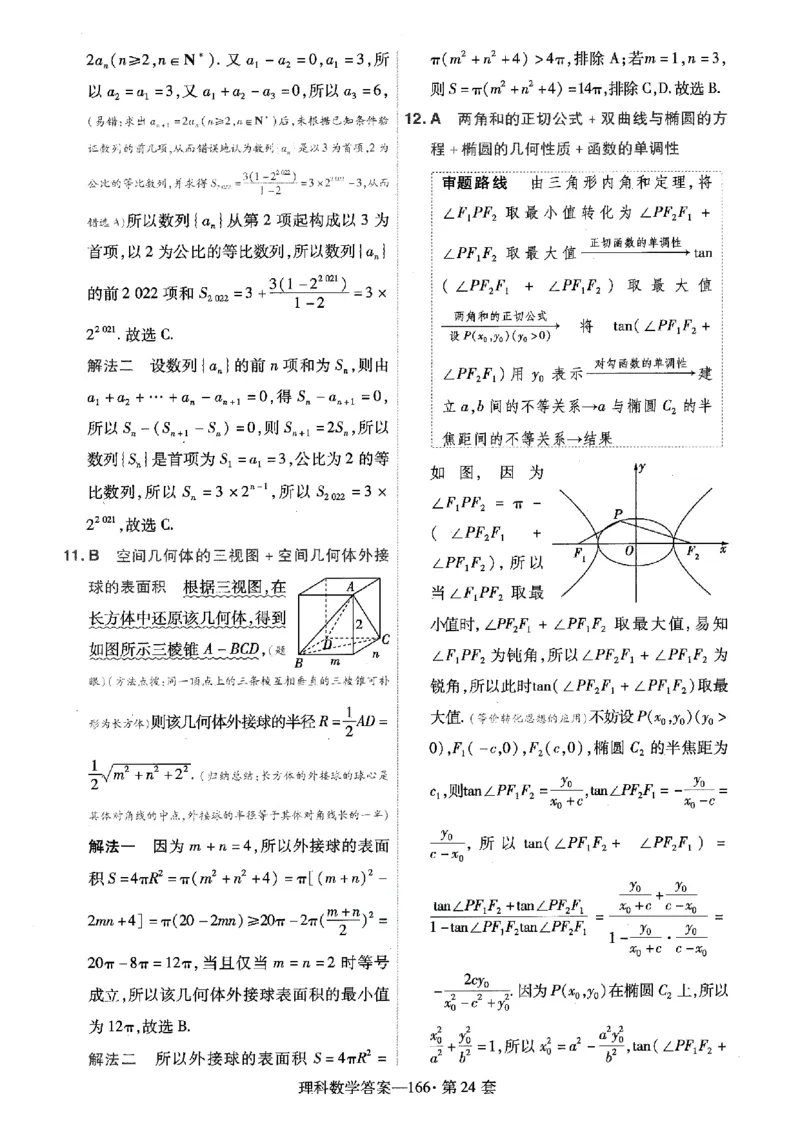 2aₙ(n≥2,n∈N*).又a₁-a₂=0,a₁=3,所
以a₂=a₁=3,又a₁+a₂-a₃=0,所以a₃=6,
(易错:求出aₙ₊₁=2aₙ(n≥2,n∈N*)后,未根据已知条件验
证数列的前几项,从而错误地认为数列{aₙ}是以3为首项,2为
公比的等比数列,并求得S₂₀₂₂=3(1-2²⁰²²)/(1-2)=3×2²⁰²²-3,从而
错选A)所以数列{aₙ}从第2项起构成以3为
首项,以2为公比的等比数列,所以数列{aₙ}
的前2 022项和S₂₀₂₂=3+3(1-2²⁰²¹)/(1-2)=3×
2²⁰²¹.故选C.
解法二 设数列{aₙ}的前n项和为Sₙ,则由
a₁+a₂+⋯+aₙ-aₙ₊₁=0,得Sₙ-aₙ₊₁=0,
所以Sₙ-(Sₙ₊₁-Sₙ)=0,则Sₙ₊₁=2Sₙ,所以
数列{Sₙ}是首项为S₁=a₁=3,公比为2的等
比数列,所以Sₙ=3×2ⁿ⁻¹,所以S₂₀₂₂=3×
2²⁰²¹,故选C.
11.B 空间几何体的三视图+空间几何体外接
球的表面积 根据三视图,在
长方体中还原该几何体,得到
如图所示三棱锥A-BCD,(题
A
2
D
C
B
m
n
眼)(方法点拨:同一顶点上的三条棱互相垂直的三棱锥可补
形为长方体)则该几何体外接球的半径R=1/2AD=
1/2√(m²+n²+2²).(归纳总结:长方体的外接球的球心是
其体对角线的中点,外接球的半径等于其体对角线长的一半)
解法一 因为m+n=4,所以外接球的表面
积S=4πR²=π(m²+n²+4)=π[(m+n)²-
2mn+4]=π(20-2mn)≥20π-2π((m+n)/2)²=
20π-8π=12π,当且仅当m=n=2时等号
成立,所以该几何体外接球表面积的最小值
为12π,故选B.
解法二 所以外接球的表面积S=4πR²=
π(m²+n²+4)>4π,排除A;若m=1,n=3,
则S=π(m²+n²+4)=14π,排除C,D.故选B.
12.A 两角和的正切公式+双曲线与椭圆的方
程+椭圆的几何性质+函数的单调性
审题路线 由三角形内角和定理,将
∠F₁PF₂取最小值转化为∠PF₂F₁+
∠PF₁F₂取最大值 正切函数的单调性→ tan
(∠PF₂F₁+∠PF₁F₂)取最大值
两角和的正切公式 设P(x₀,y₀)(y₀>0)→ 将 tan(∠PF₁F₂+
∠PF₂F₁)用y₀表示 对勾函数的单调性→ 建
立a,b间的不等关系→a与椭圆C₂的半
焦距间的不等关系→结果
如图,因为
∠F₁PF₂=π-
(∠PF₂F₁+
∠PF₁F₂),所以
当∠F₁PF₂取最
y
P
F₁
O
F₂
x
小值时,∠PF₂F₁+∠PF₁F₂取最大值,易知
∠F₁PF₂为钝角,所以∠PF₂F₁+∠PF₁F₂为
锐角,所以此时tan(∠PF₂F₁+∠PF₁F₂)取最
大值.(等价转化思想的应用)不妨设P(x₀,y₀)(y₀>
0),F₁(-c,0),F₂(c,0),椭圆C₂的半焦距为
c₁,则tan∠PF₁F₂=y₀/(x₀+c),tan∠PF₂F₁=-y₀/(x₀-c)=
y₀/(c-x₀),所以tan(∠PF₁F₂+∠PF₂F₁)=
(tan∠PF₁F₂+tan∠PF₂F₁)/(1-tan∠PF₁F₂tan∠PF₂F₁)=(y₀/(x₀+c)+y₀/(c-x₀))/(1-y₀/(x₀+c)·y₀/(c-x₀))=
-2cy₀/(x₀²-c²+y₀²).因为P(x₀,y₀)在椭圆C₂上,所以
x₀²/a²+y₀²/b²=1,所以x₀²=a²-a²y₀²/b²,tan(∠PF₁F₂+
理科数学答案—166·第24套